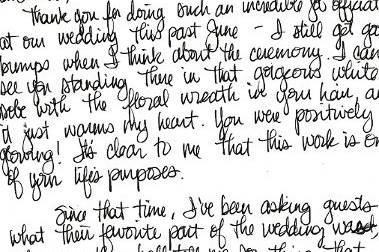 Thank you for doing such an incredible job officiat
at our wedding this past June - I still get go
bumps when I think about the ceremony. I can
see you standing there in that gorgeous white
robe with the floral wreath in your hair an
it just warms my heart. You were positively
glowing! It's clear to me that this work is on
of your life's purposes.
Since that time, I've been asking guests
what their favorite part of the wedding was,